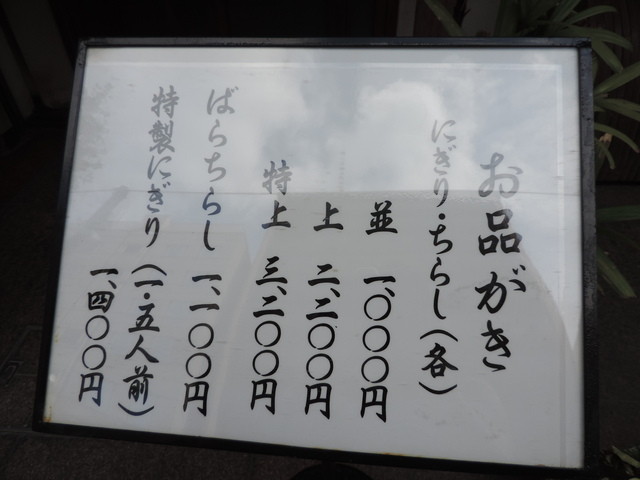 お品がき
にぎり・ちらし(各)
並 一、〇〇〇円
上 二、二〇〇円
特上 三、二〇〇円
ばらちらし 一、一〇〇円
特製にぎり(一・五人前)
一、四〇〇円